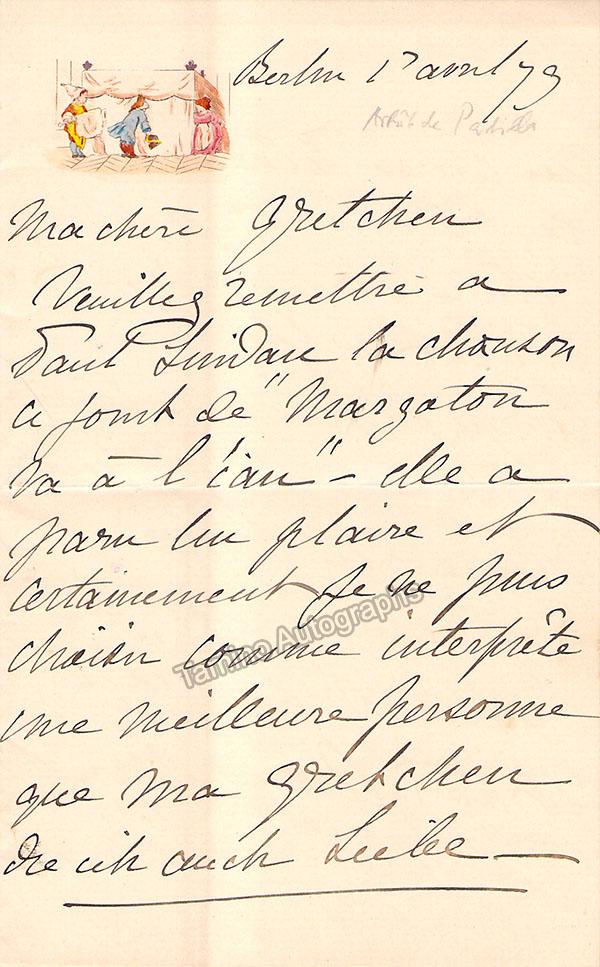 Berlin 17 avril 79
Artôt de Padilla
Ma chère Gretchen
Veuillez remettre a
Paul Lindau la chanson
ci joint de "Margoton
va à l'eau" – elle a
paru lui plaire et
certainement je ne puis
choisir comme interprête
une meilleure personne
que ma Gretchen
die ich auch Liebe —
Tamino Autographs